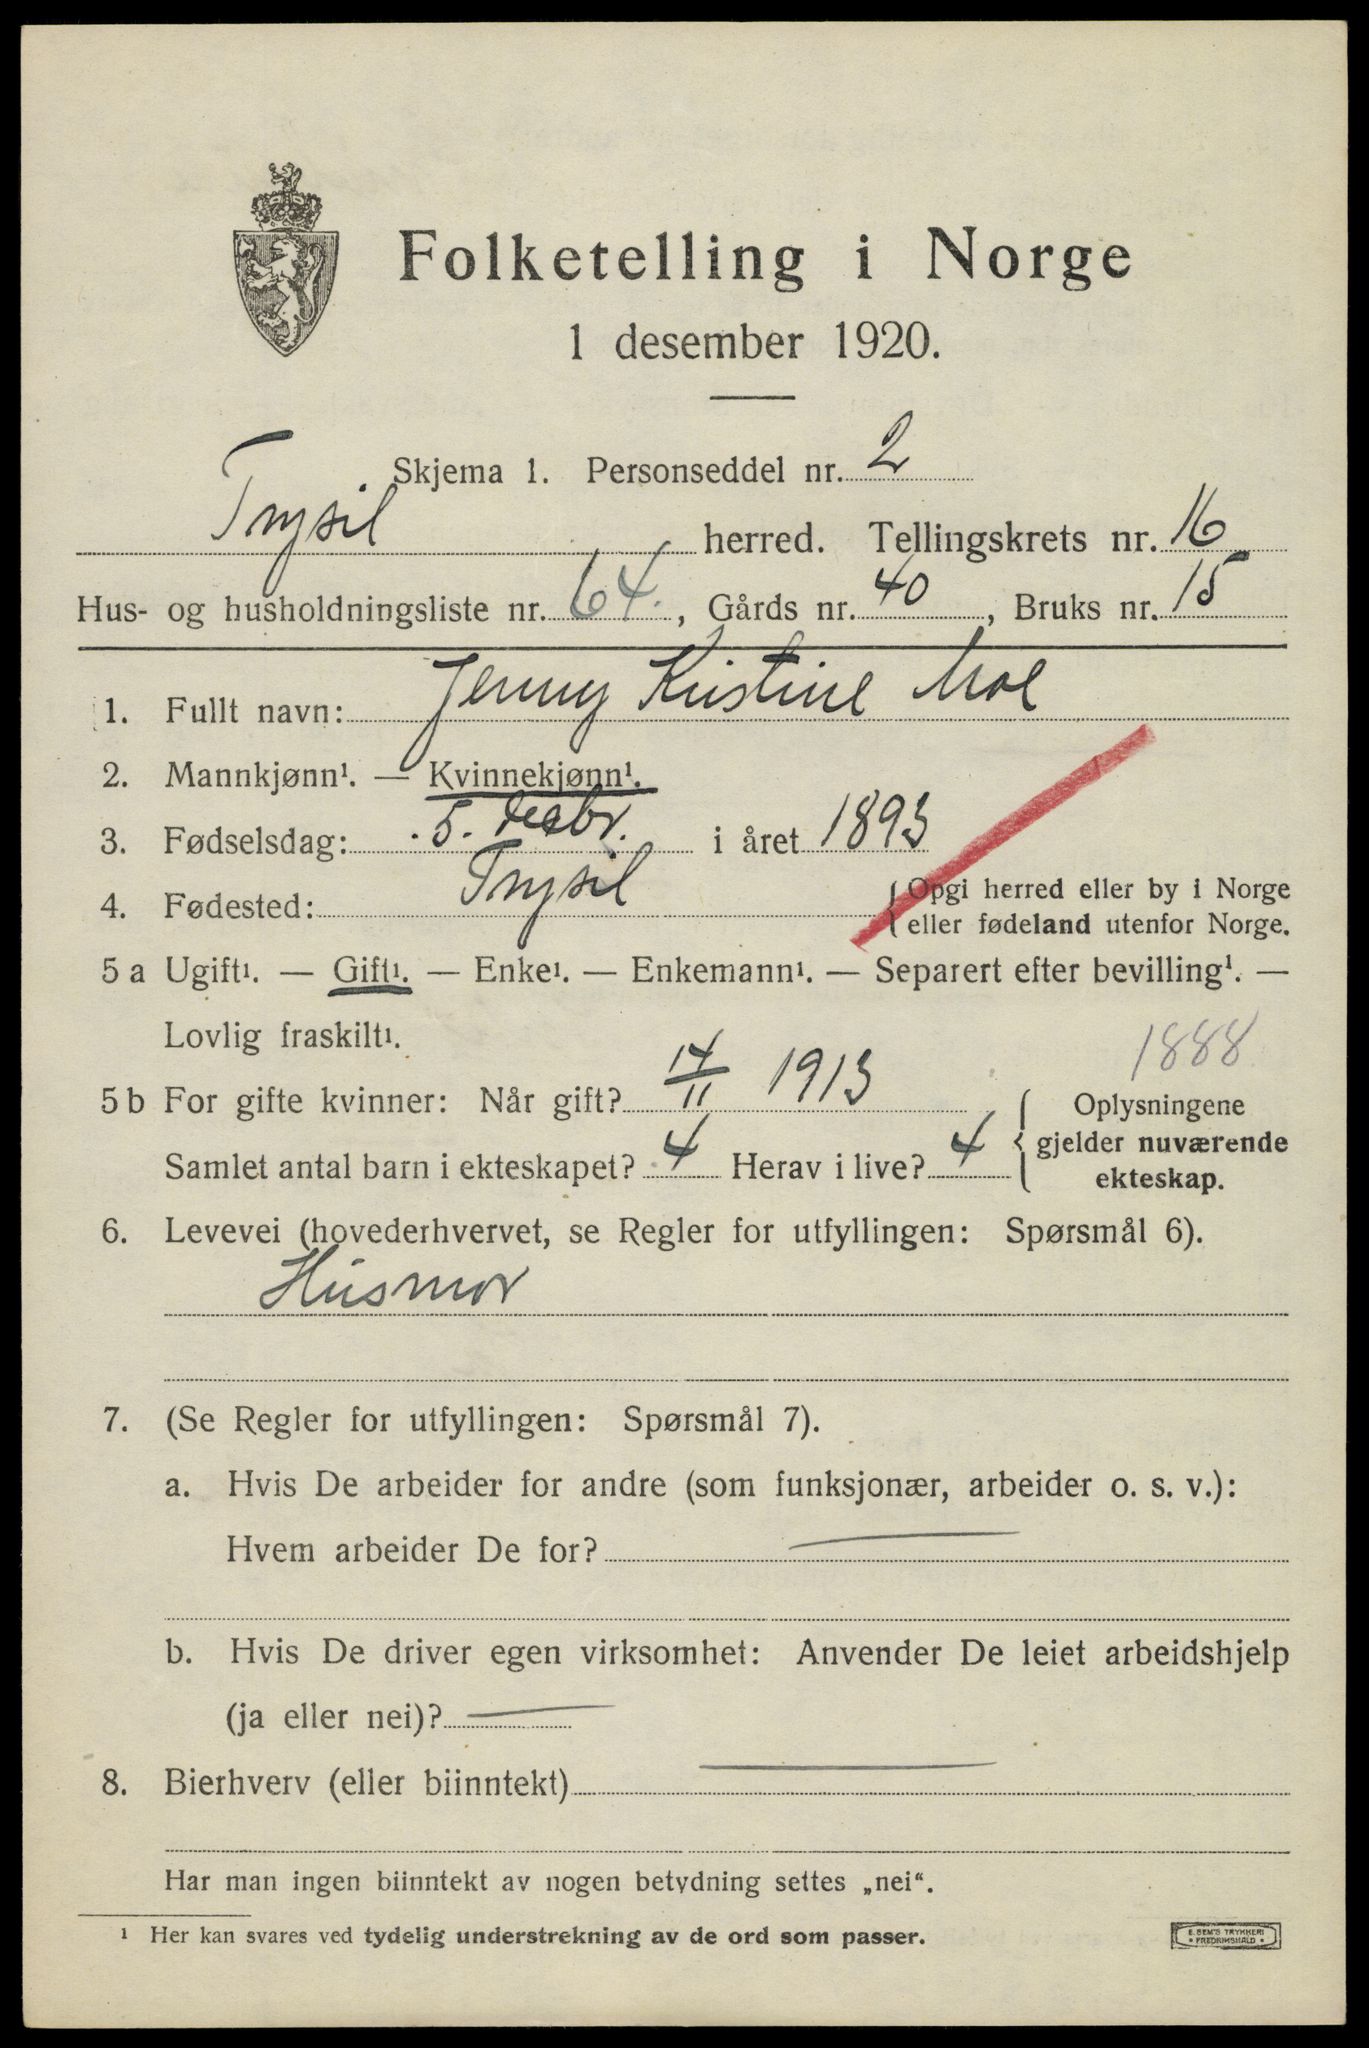 Folketelling i Norge
1 desember 1920.
Skjema 1. Personseddel nr. 2
Trysil herred. Tellingskrets nr. 16
Hus- og husholdningsliste nr. 64. , Gårds nr. 40 , Bruks nr. 15
1. Fullt navn: Jenny Kristine Moe
2. Mannkjønn¹. — Kvinnekjønn¹.
3. Fødselsdag: 5. decbr. i året 1893
4. Fødested: Trysil { Opgi herred eller by i Norge
eller fødeland utenfor Norge.
5 a Ugift¹. — Gift¹. — Enke¹. — Enkemann¹. — Separert efter bevilling¹. —
Lovlig fraskilt¹.
1888
5 b For gifte kvinner: Når gift? 14/11 1913 { Oplysningene
gjelder nuværende
ekteskap.
Samlet antal barn i ekteskapet? 4 Herav i live? 4
6. Levevei (hovederhvervet, se Regler for utfyllingen: Spørsmål 6).
Husmor
7. (Se Regler for utfyllingen: Spørsmål 7).
a. Hvis De arbeider for andre (som funksjonær, arbeider o. s. v.):
Hvem arbeider De for? —
b. Hvis De driver egen virksomhet: Anvender De leiet arbeidshjelp
(ja eller nei)? —
8. Bierhverv (eller biinntekt) —
Har man ingen biinntekt av nogen betydning settes „nei“.
¹ Her kan svares ved tydelig understrekning av de ord som passer.
E. SEM'S TRYKKERI
• FREDRIKSHALD •